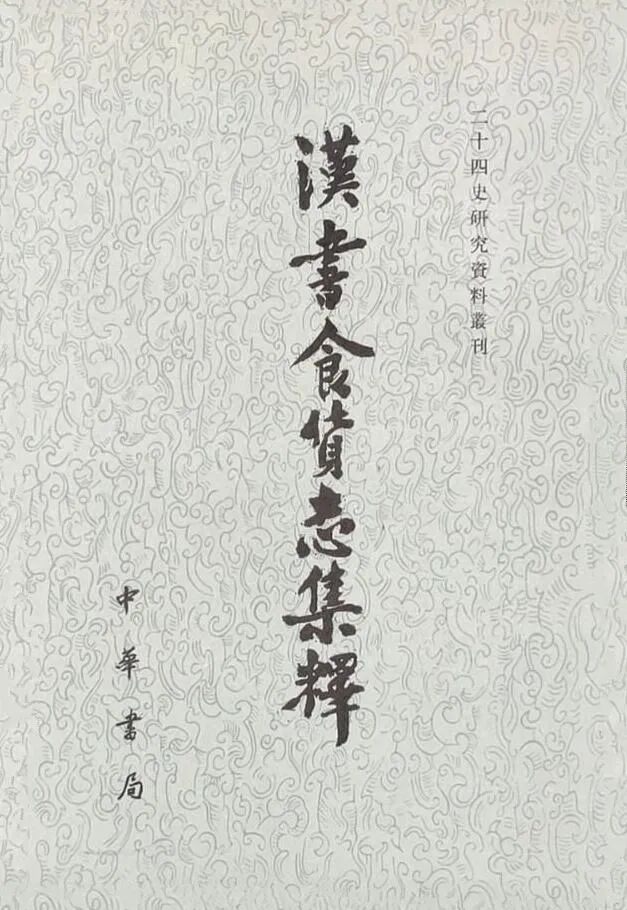 二十四史研究資料叢刊
漢書食貨志集釋
中華書局